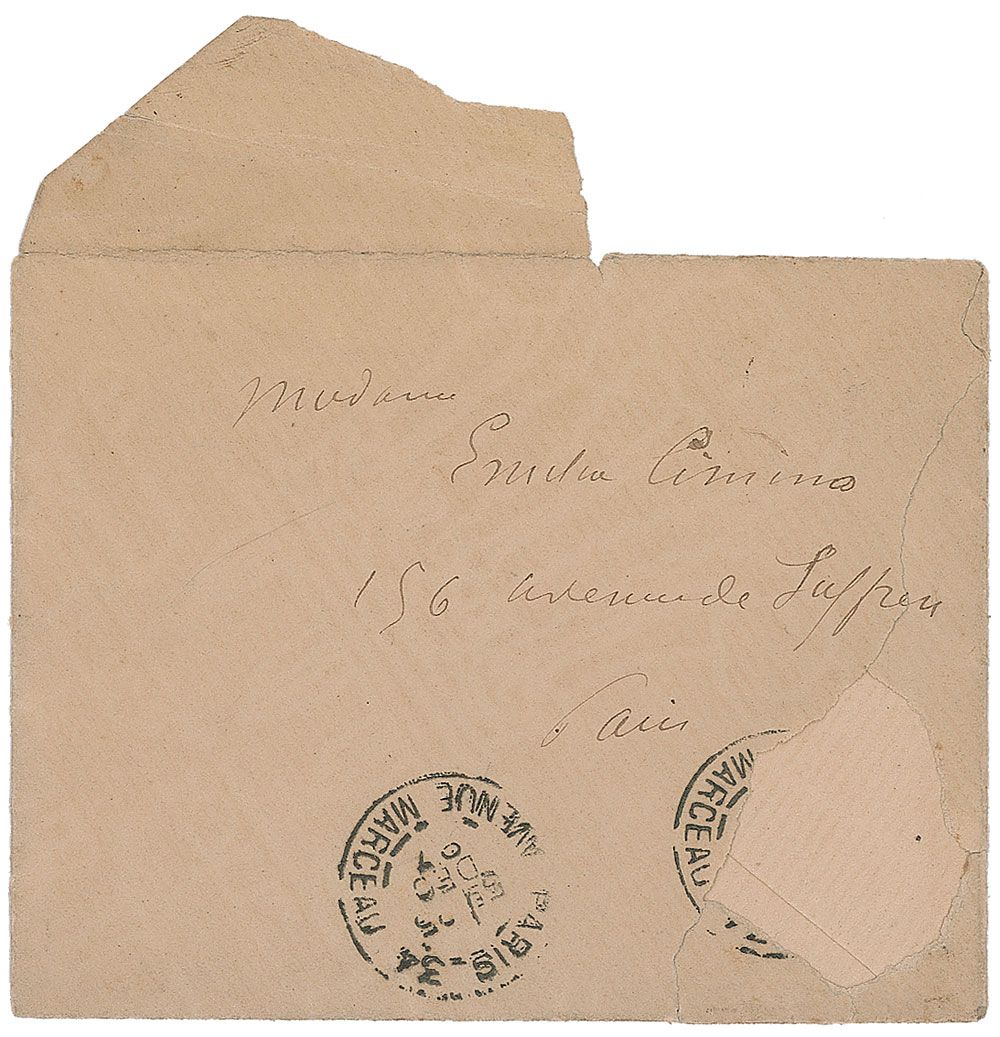 Madame
Emilia Cimino
156 avenue de Suffren
Paris
PARIS
AVENUE MARCEAU
MARCEAU